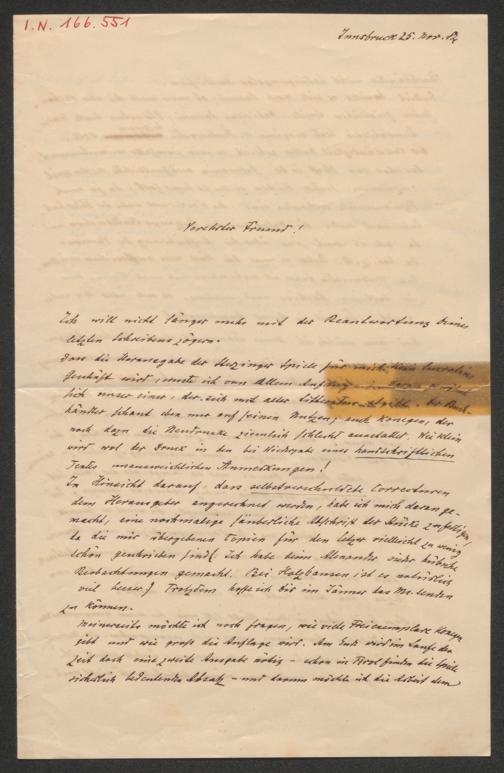 I.N. 166.551
Innsbruck 25. Nov.
Verehrter Freund!
Ich will nicht länger mehr mit der Beantwortung Deines
letzten Schreibens zögern.
Dass die Herausgabe der Sterzinger Spiele für mich kein lucratives
Geschäft wird, wusste ich von allem Anfang
sich unser einer, der sich mit alter Litteratur abgibt. Der Buch-
händler schaut eben nur auf seinen Nutzen; auch Konegen, der
noch dazu die Neudrucke ziemlich schlecht ausstattet. Wie klein
wird wol der Druck in den bei Wiedergabe eines handschriftlichen
Textes unausweichlichen Anmerkungen!
In Hinsicht darauf, dass selbstverschuldete Correcturen
dem Herausgeber angerechnet werden, habe ich mich daran ge-
macht, eine nochmalige säuberliche Abschrift der Stücke
da die mir übergebenen Copien für den Setzer vielleicht zu wenig
schön geschrieben sind (ich habe beim Alexander
Beobachtungen gemacht. Bei Holzhausen ist es natürlich
viel besser.) Trotzdem hoffe ich bis im Jänner das Ms. senden
zu können.
Meinerseits möchte ich noch fragen, wie viele Freiexemplare Konegen
gibt und wie gross die Auflage wird. Am Ende wird im Laufe der
Zeit doch eine zweite Ausgabe nötig – schon in Tirol finden die Spiele
sicherlich bedeutenden Absatz – und darum möchte ich die Arbeit dem